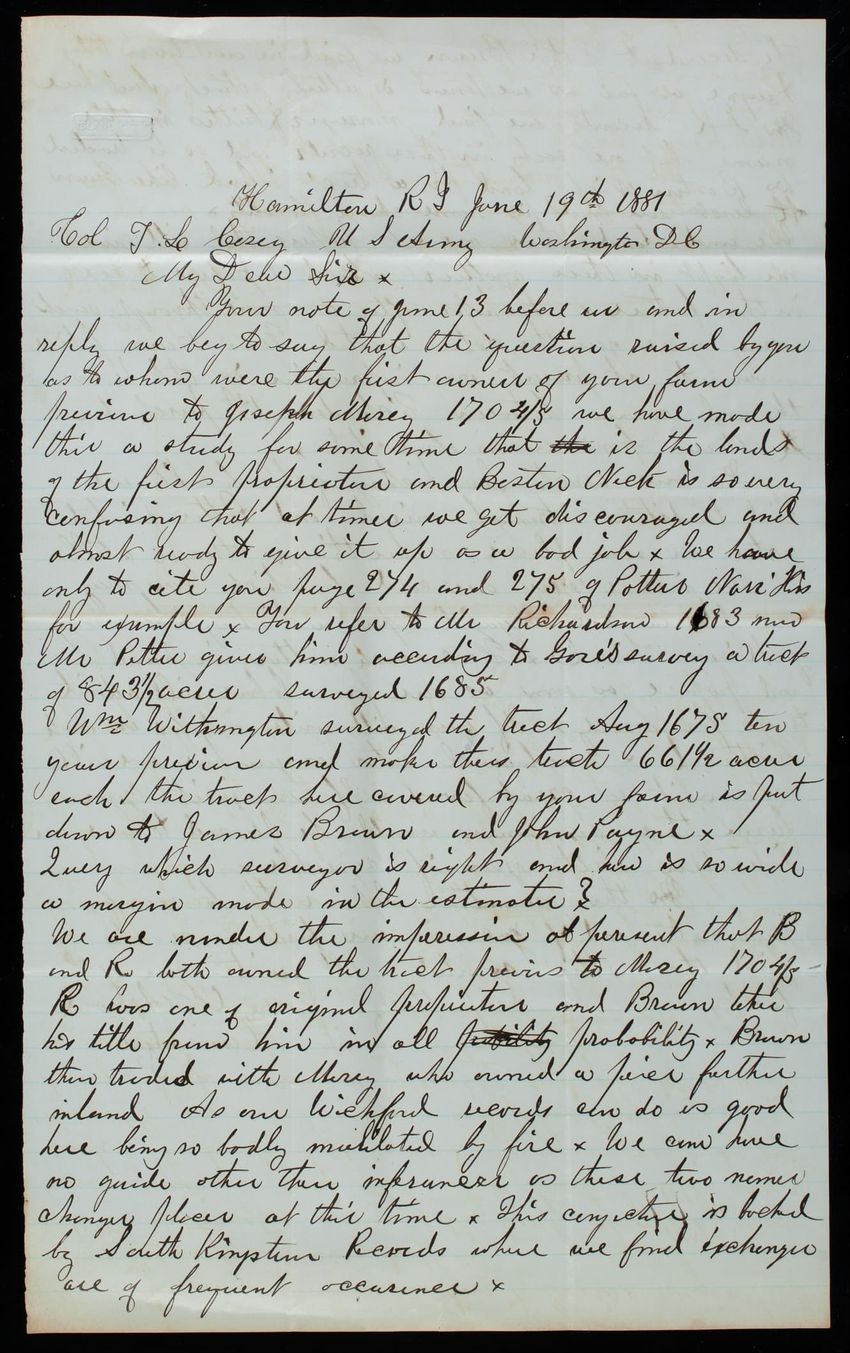 Hamilton R I June 19th 1881
Col T. L. Casey U S Army Washington DC
My Dear Sir x
Your note of June 13 before us and in
reply we beg to say that the question raised by you
as to whom were the first owners of your farm
previous to Joseph Morey 1704/5 we have made
this a study for some time that the is the lands
of the first proprietors and Boston Neck is so very
confusing that at times we get discouraged and
almost ready to give it up as a bad job x We have
only to cite you page 274 and 275 of Potters Nari His
for example x You refer to Mr Richardson 1683 now
Mr Potter gives him according to Gore's survey a tract
of 843 1/2 acres surveyed 1685
Wm Withrington surveyed the tract Aug 1675 ten
years previous and makes these tracts 661 1/2 acres
each the tract here covered by your farm is put
down to James Brown and John Payne x
Query which surveyor is right and how is so wide
a margin made in the estimates?
We are under the impression at present that B
and R both owned the tract previous to Morey 1704/5
R was one of original proprietors and Brown takes
his title from him in all probility probability x Brown
then traded with Morey who owned a piece further
inland As our Wickford records can do us good
here being so badly mutilated by fire x We can have
no guide other than inferances as these two names
changes places at this time x This conjecture is backed
by South Kingstown Records where we find exchanges
are of frequent occurence x